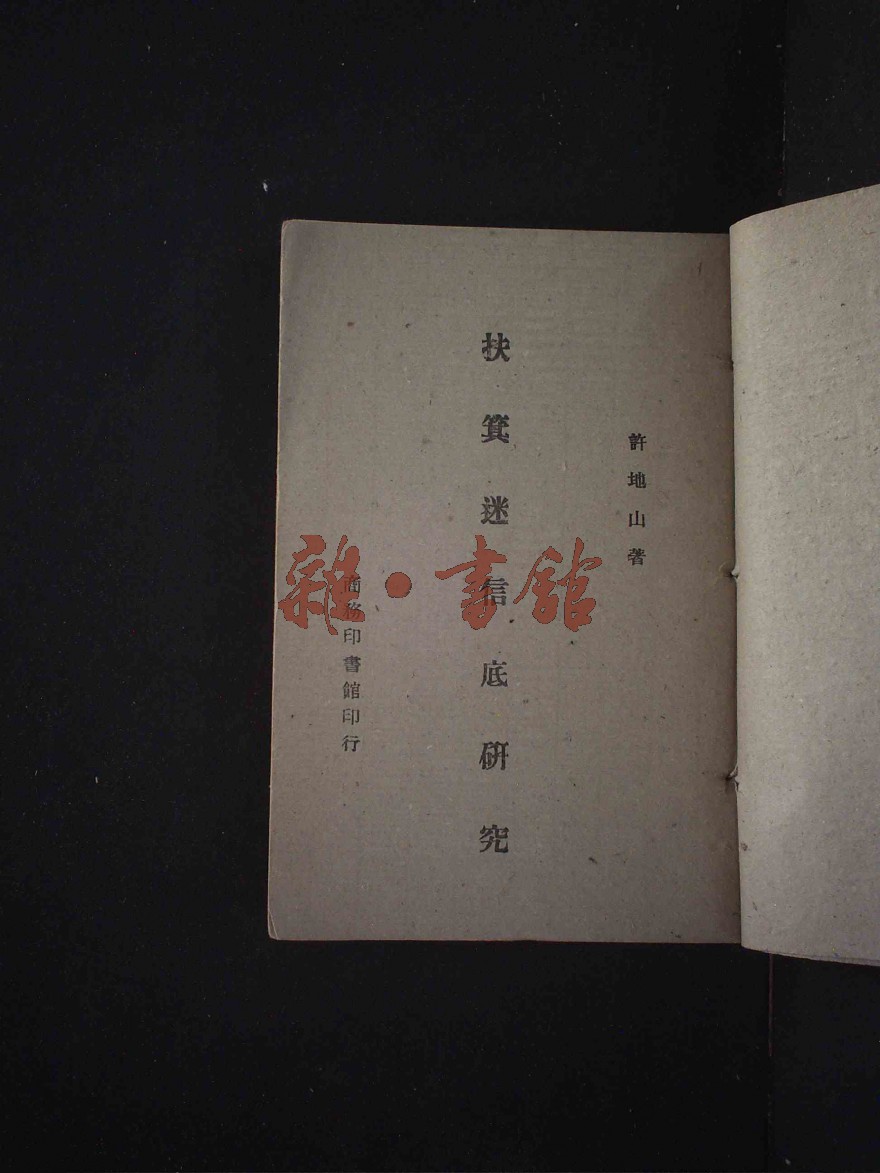 許地山著
扶箕迷信底研究
商務印書館印行
雜·書館